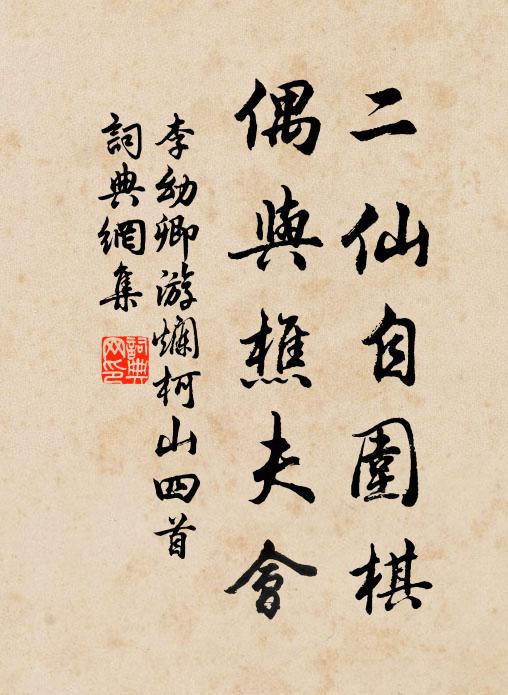 二仙自圍棋
偶與樵夫會
李幼卿游爛柯山四首
詞典網集
詞典網印